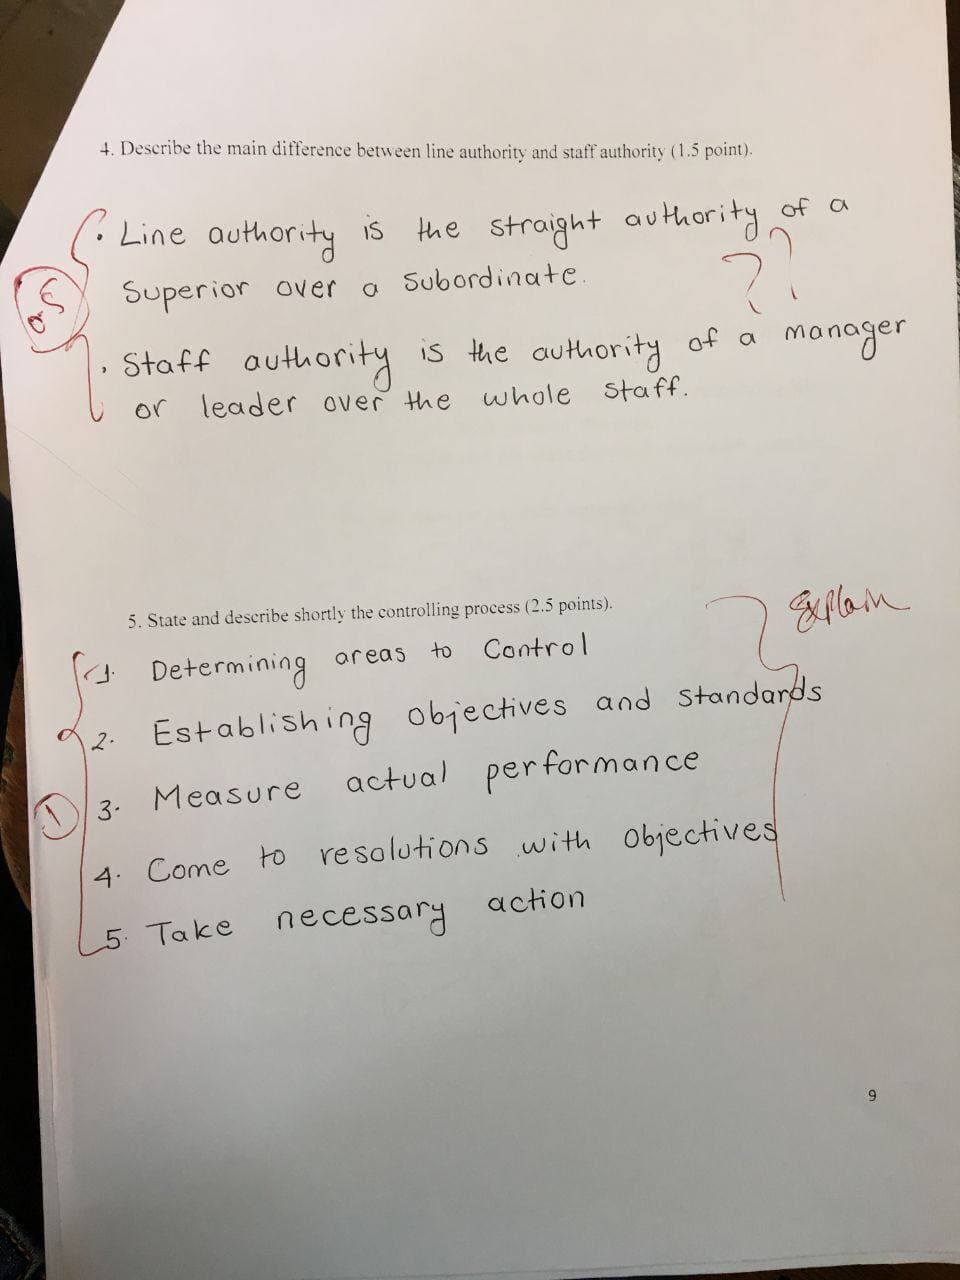 4. Describe the main difference between line authority and staff authority (1.5 point).
• Line authority is the straight authority of a
Superior over a Subordinate.
??
0.5
• Staff authority is the authority of a manager
or leader over the whole Staff.
5. State and describe shortly the controlling process (2.5 points).
Explain
1. Determining areas to Control
2. Establishing objectives and standards
3. Measure actual performance
1
4. Come to resolutions with objectives
5. Take necessary action
9